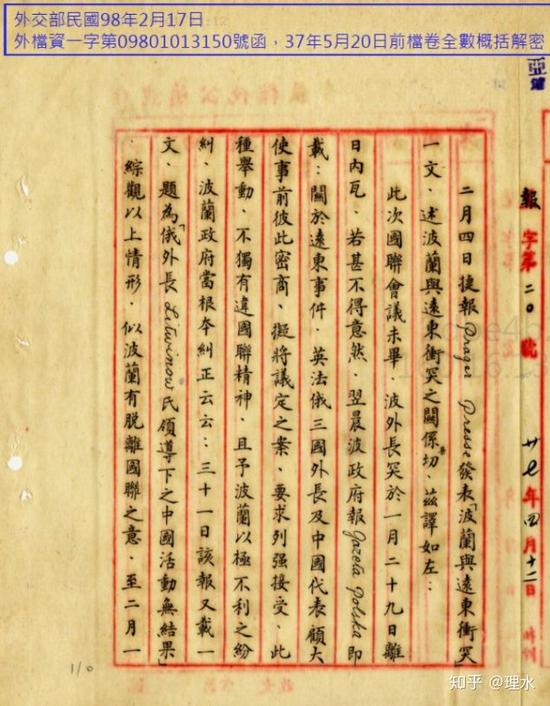 外交部民國98年2月17日
外檔資一字第09801013150號函，37年5月20日前檔卷全數概括解密
亞
報字第二〇號 廿七年四月十二日
二月四日捷報Prager Presse發表「波蘭與遠東衝突
一文、述波蘭與遠東衝突之關係切、茲譯如左：
此次國聯會議未畢、波外長突於一月二十九日離
日內瓦、若甚不得意然、翌晨波政府報Gazeta Polska即
載：關於遠東事件、英法俄三國外長及中國代表顧大
使事前彼此密商、擬將議定之案、要求列强接受、此
種舉動、不獨有違國聯精神、且予波蘭以極不利之紛
糾、波蘭政府當根本糾正云云：三十一日該報又載一
文、題為「俄外長Litwinow氏領導下之中國活動無結果」
綜觀以上情形、似波蘭有脫離國聯之意、至二月一
110
知乎 @理水